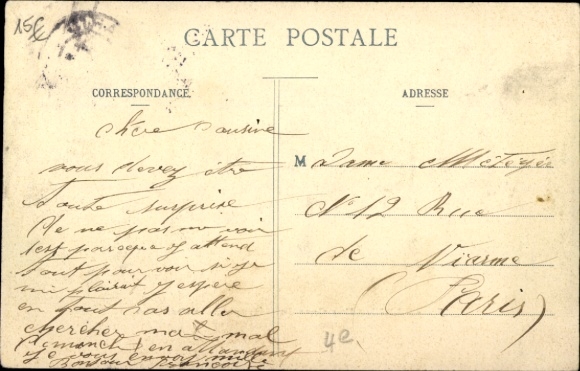 15€
CARTE POSTALE
CORRESPONDANCE
ADRESSE
chère Cousine
vous devez être
toute surprise
de ne pas me voir
c'est parceque j'attend
tout pour voir si je
mi plairai j'espère
en tout cas aller
chercher ma mal
dimanche en attendant
je vous envoi mille
Bonjour Françoise
Madame
No 12 Rue
de Viarme
(Paris)
4e